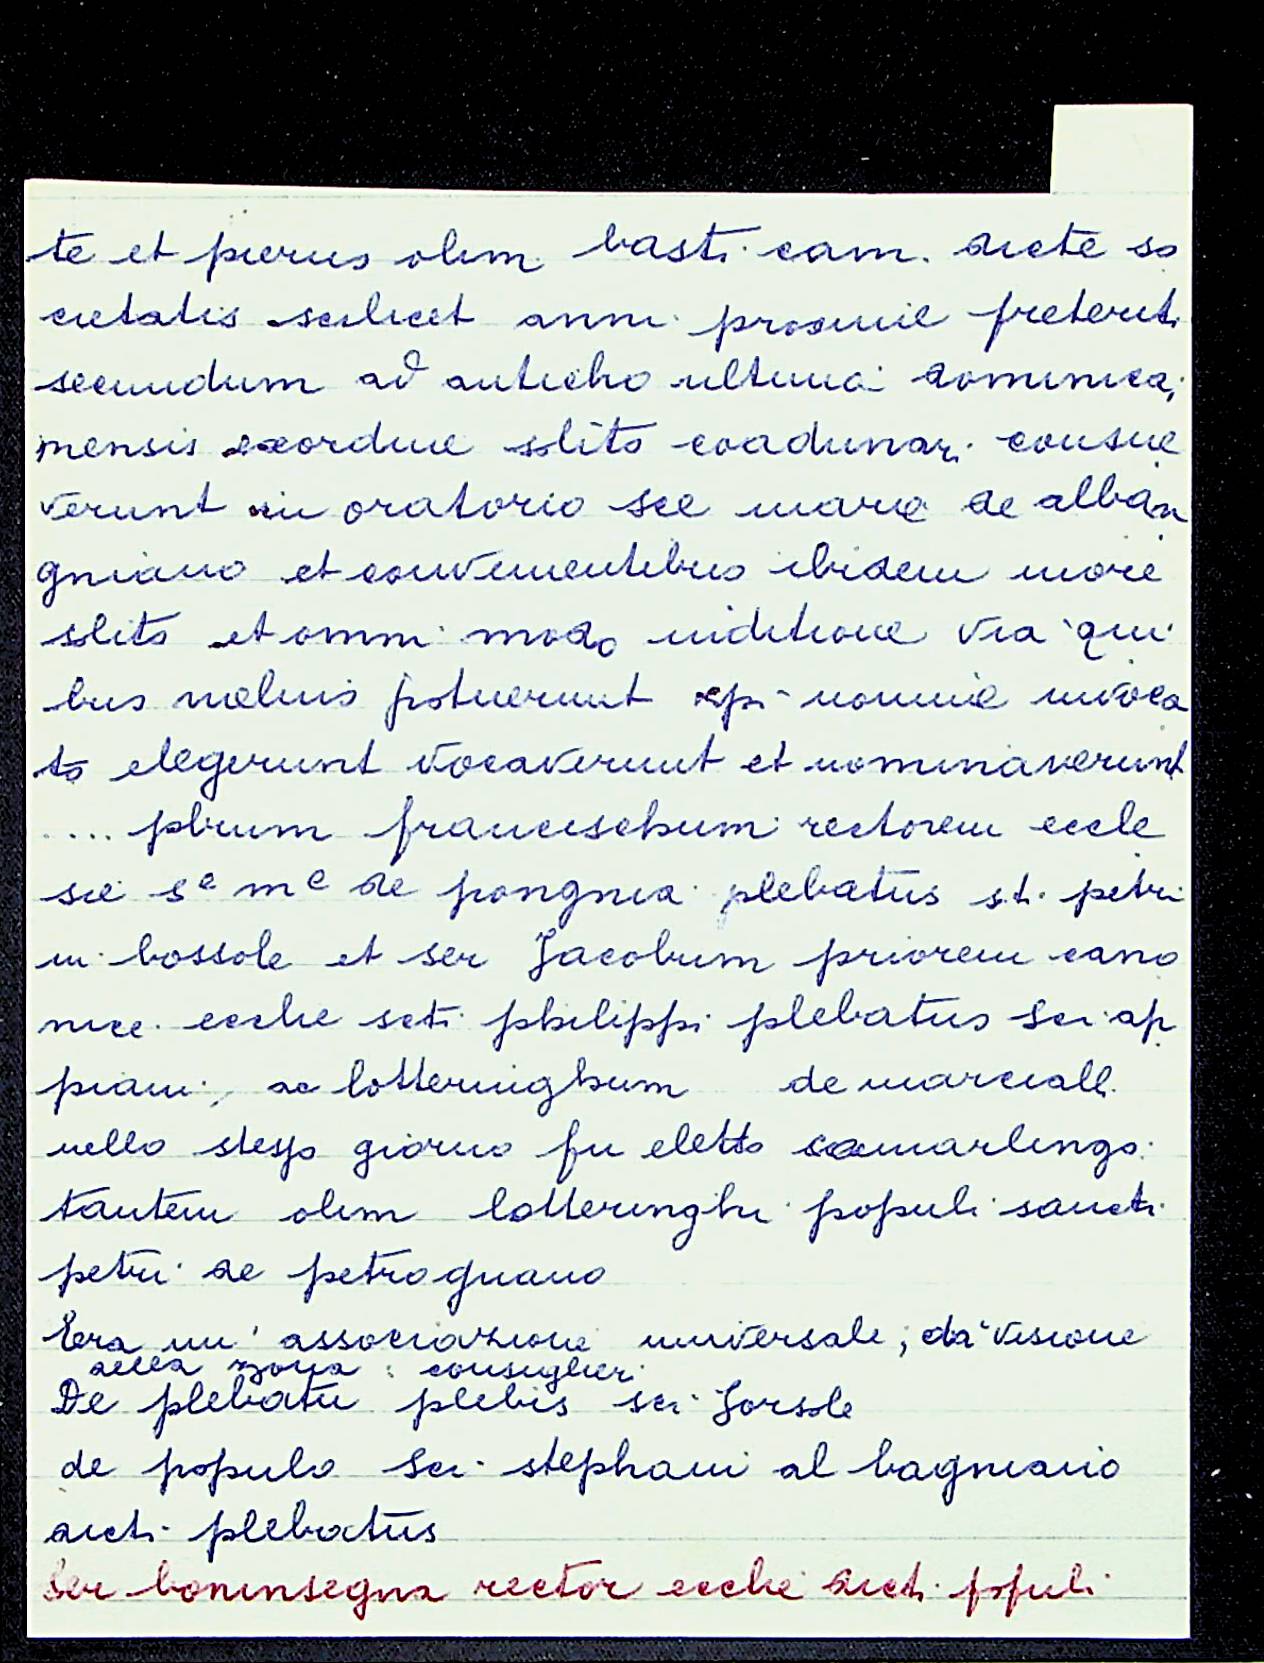 te et pierus olim basti. cam. dicte so
cietatis scilicet anni proximie preteriti
secundum ad anticho ultima dominica
mensis exordine slito coadunar. consue
verunt in oratorio sce marie de alban
gniano et convenientibus ibidem more
slito et omni modo via qui
bus melius potuerunt xpi nomine invoca
to elegerunt vocaverunt et nominaverunt
.... pbrum francischum rectorem eccle
sie se me de pongnia plebatus s.ti petri
in bossole et ser Jacobum priorem cano
nice ecche scti philippi plebatus sci ap
piani, ac lotteringhum de marciall.
nello stesso giorno fu eletto camarlingo:
tantem olim lotteringhi populi sancti
petri de petrognano
Era un' associazione universale; da visione
della zona: consiglieri
De plebatu plebis sci
de populo sci stephani al bagniano
dicti plebatus
Ser boninsegna rector ecche dicti populi